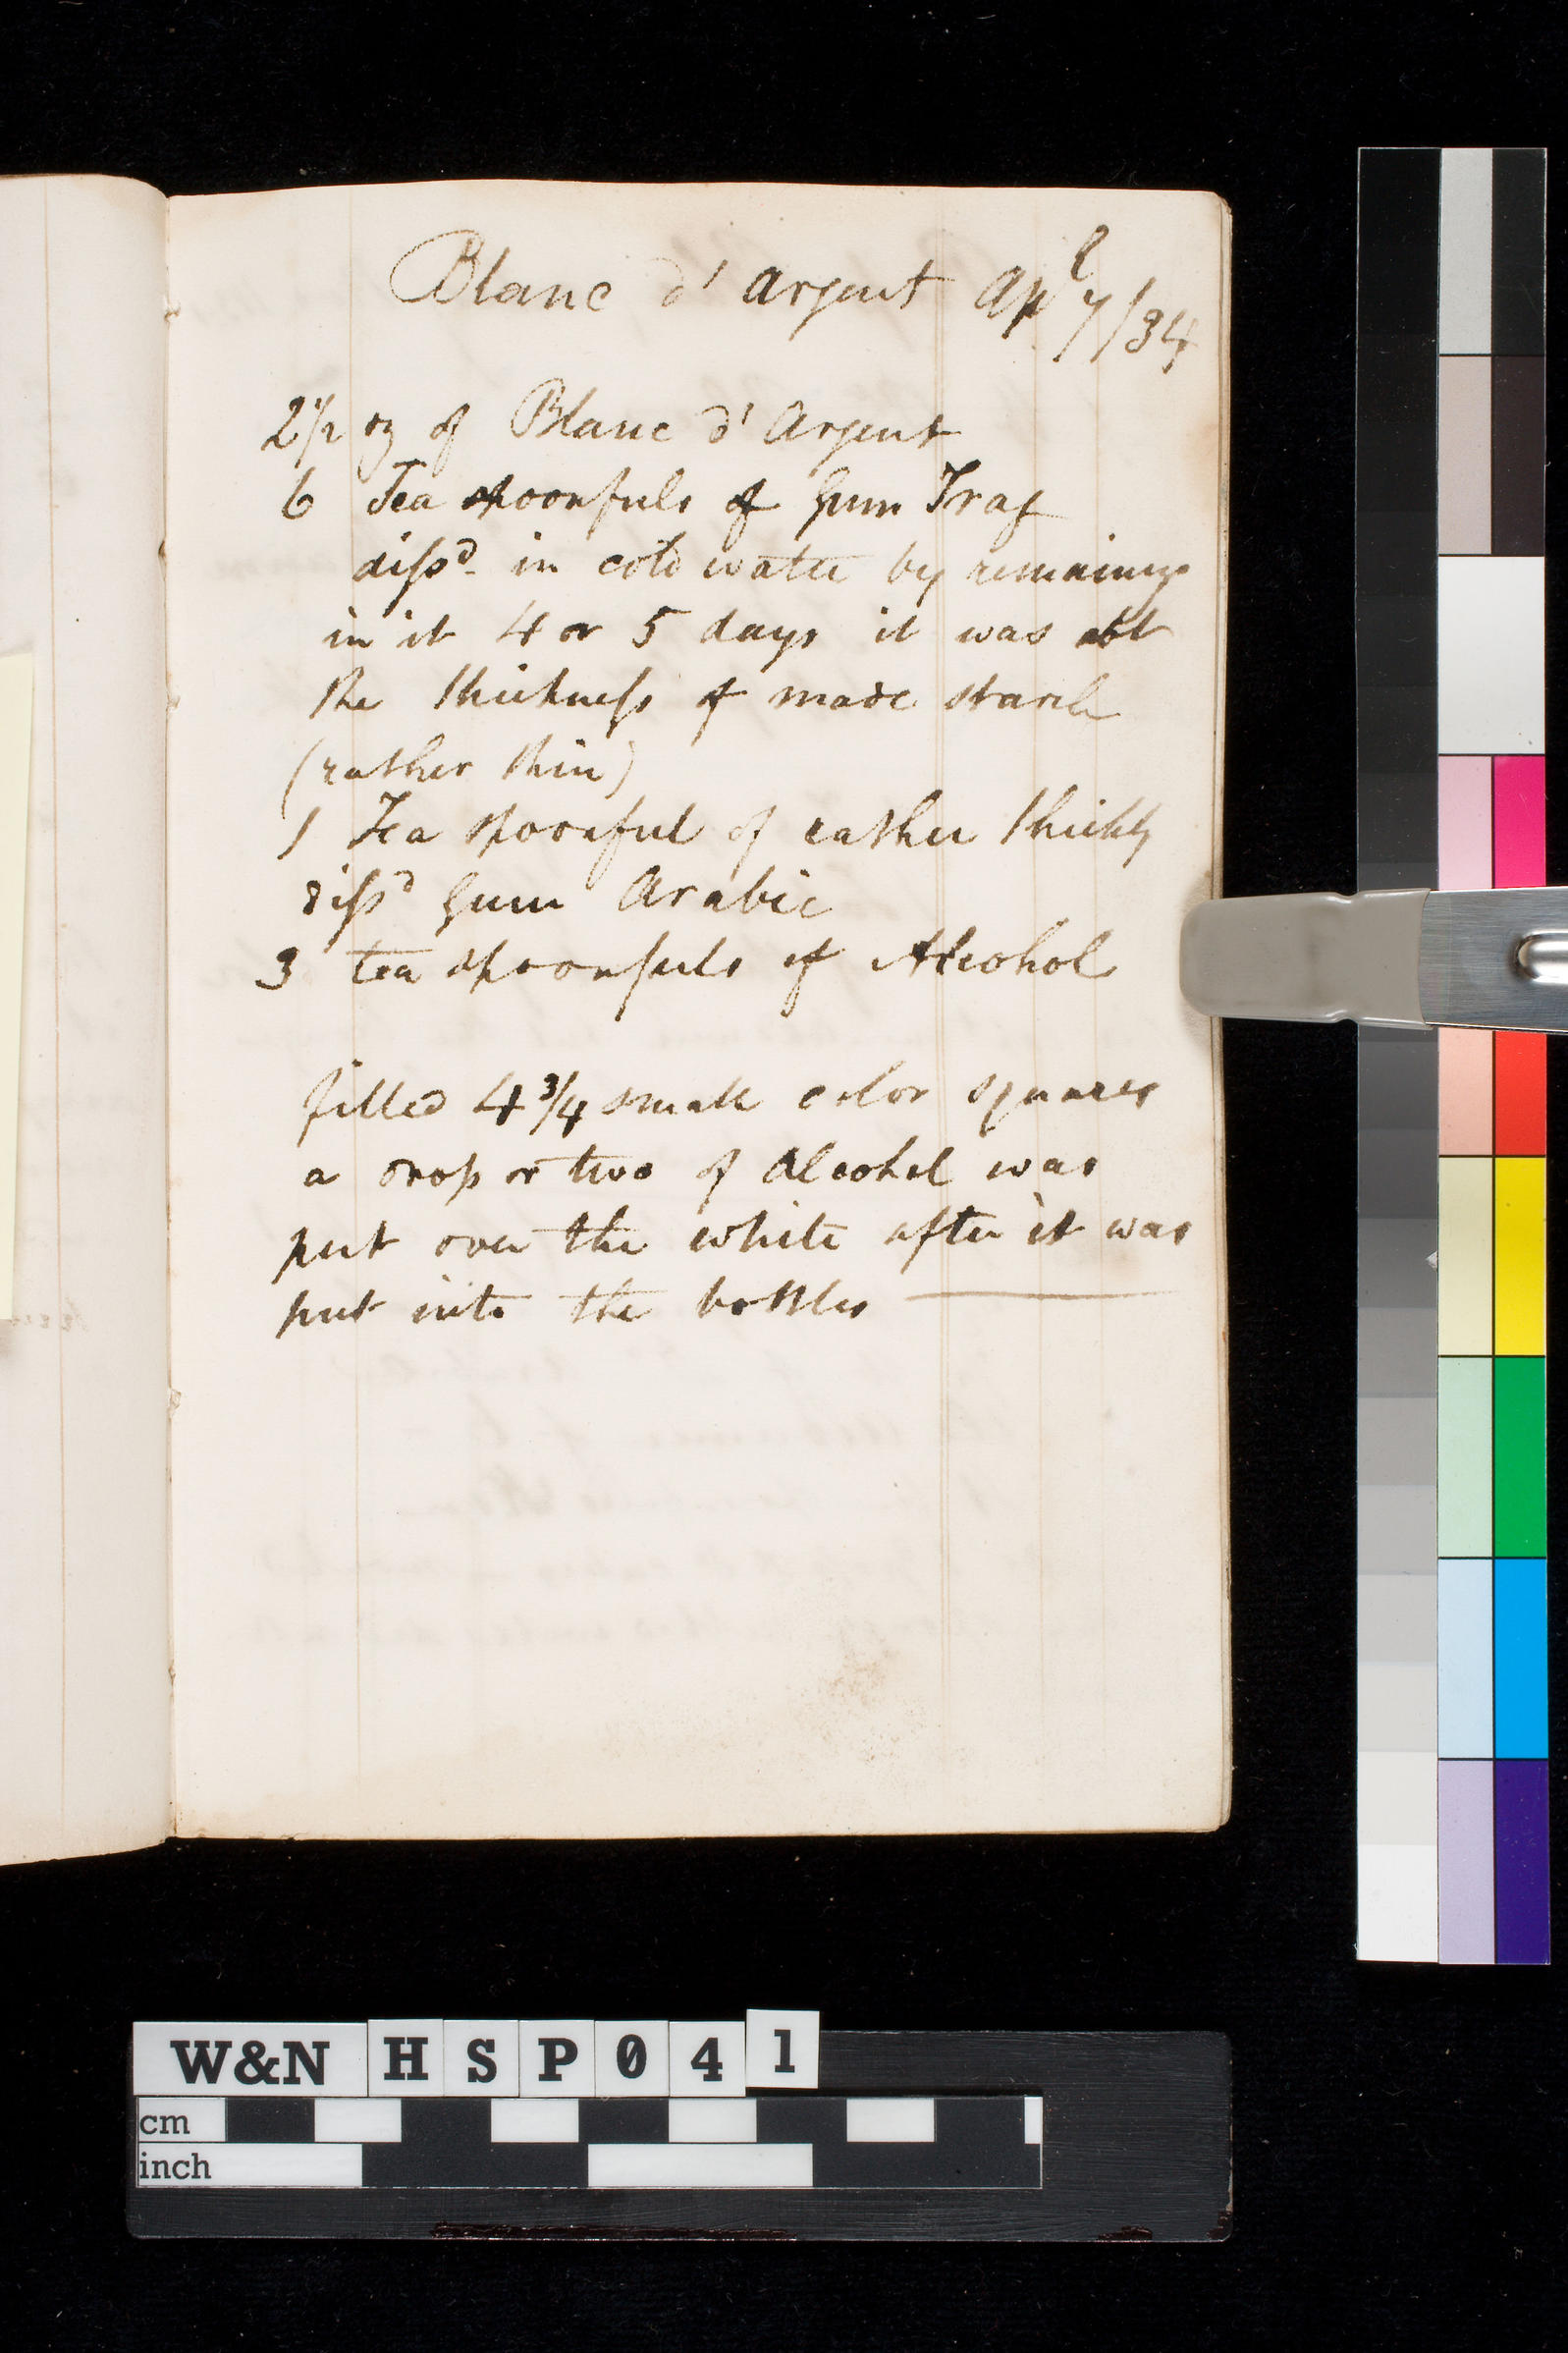 Blanc d' Argent Apl 7/34
2 1/2 oz of Blanc d' Argent
6 Tea spoonfuls of Gum Trag
dissd. in cold water by remaining
in it 4 or 5 days it was abt
the thickness of made starch
(rather thin)
1 Tea spoonful of rather thickly
dissd Gum Arabic
3 tea spoonfuls of Alcohol
filled 4 3/4 small color squares
a drop or two of Alcohol was
put over the white after it was
put into the bottles
W&N HSP041
cm
inch